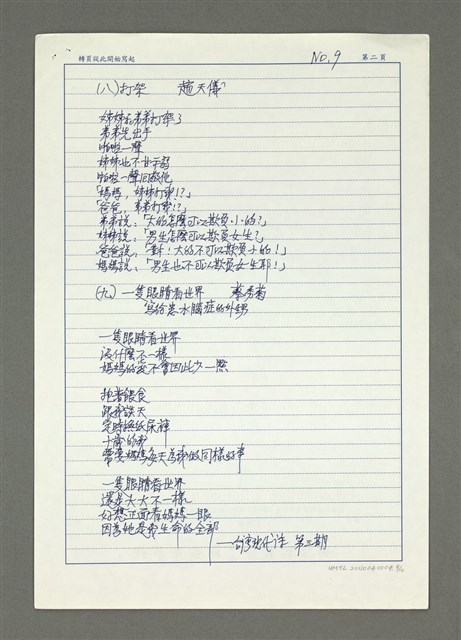 轉頁從此開始寫起
No. 9
第二頁
(八)打架 趙天儀
姊姊和弟弟打架了
弟弟先出手
啪啦一聲
姊姊也不甘示弱
啪啦一聲回敬他
「媽媽,姊姊打我!?」
「爸爸,弟弟打我!?」
弟弟說:「大的怎麼可以欺負小的?」
姊姊說:「男生怎麼可以欺負女生?」
爸爸說:「對!大的不可以欺負小的!」
媽媽說:「男生也不可以欺負女生耶!」
(九)一隻眼睛看世界 蔡秀菊
寫給患水腦症的外甥
一隻眼睛看世界
沒什麼不一樣
媽媽的愛不會因此少一點
抱著餵食
跟我談天
定時換紙尿褲
十歲的我
需要媽媽每天為我做同樣的事
一隻眼睛看世界
還是大大不一樣
好想正面看媽媽一眼
因為她是我生命的全部
——台灣現代詩 第三期